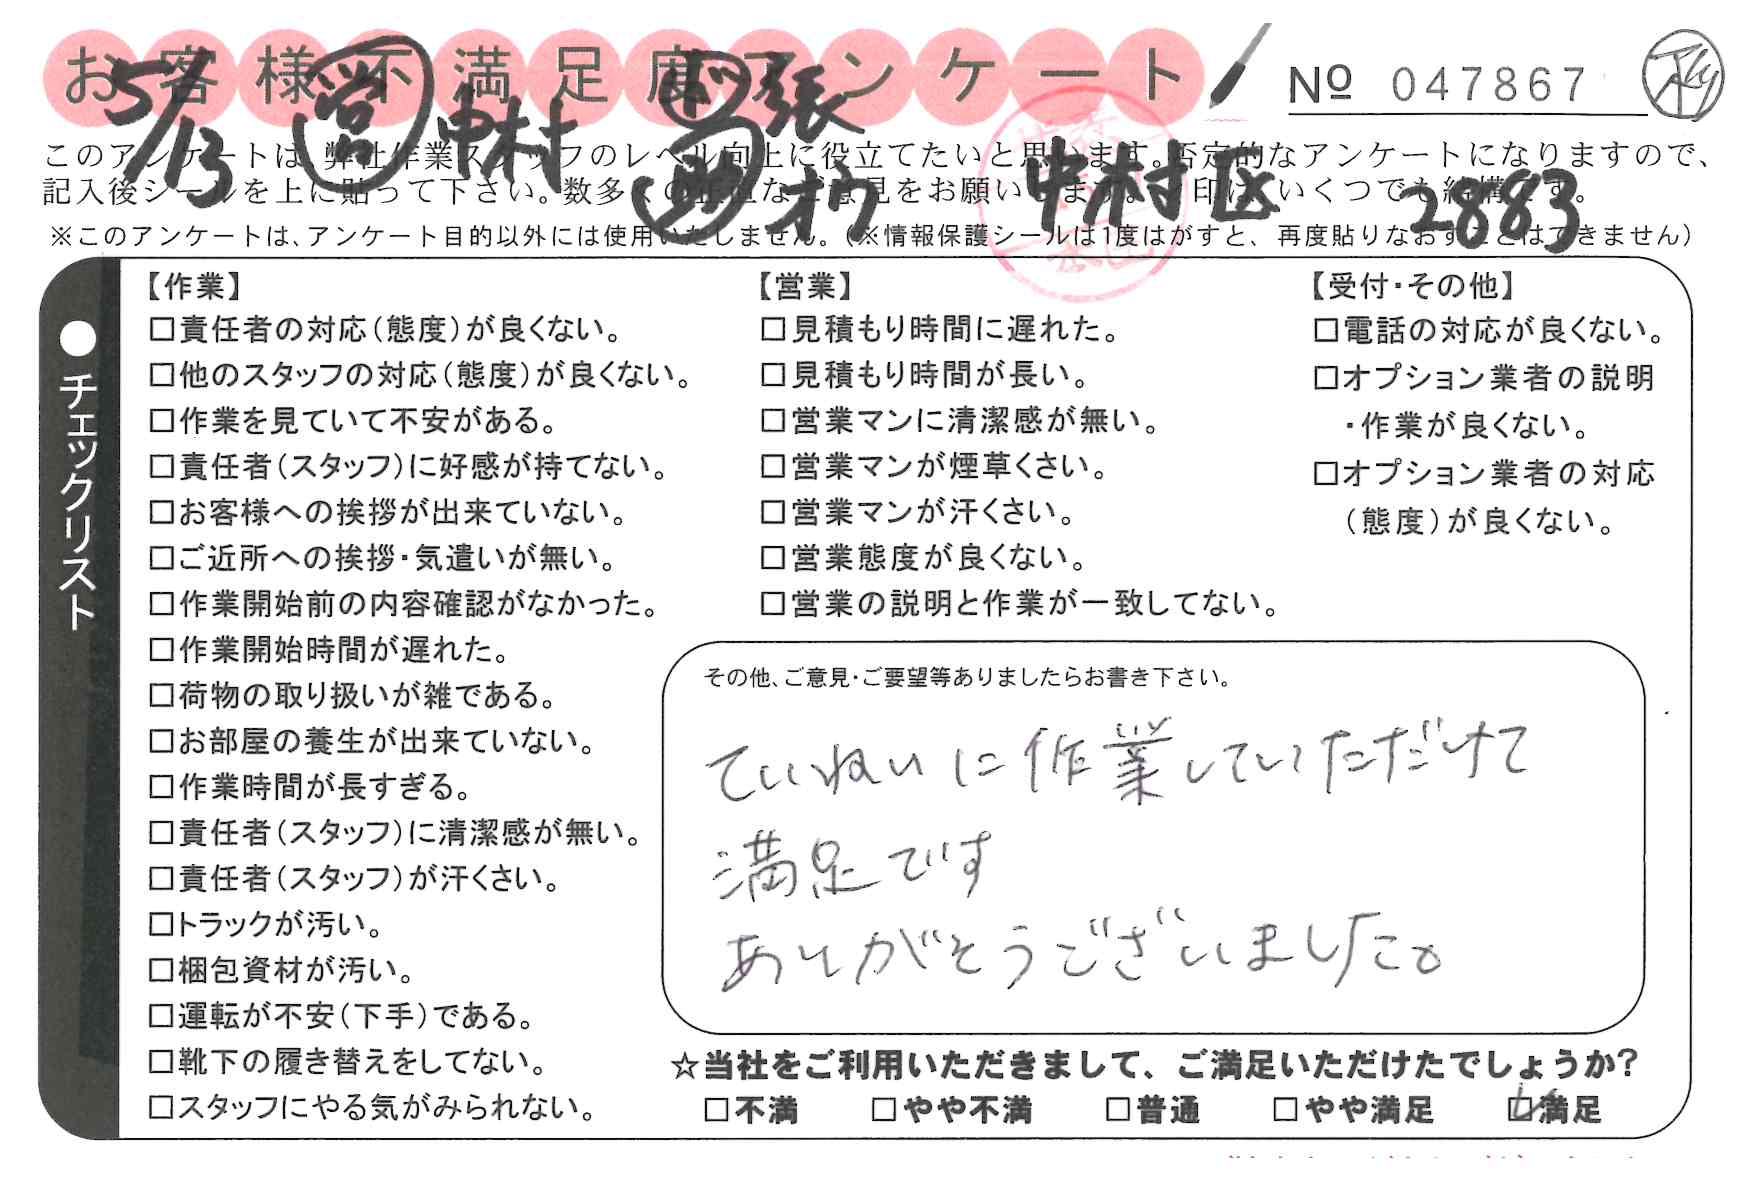 お客様不満足度アンケート
№ 047867
5/13 営 中村 ド 張
助 オウ 中村区 2883
このアンケートは、弊社作業スタッフのレベル向上に役立てたいと思います。否定的なアンケートになりますので、
記入後シールを上に貼って下さい。数多くの正直なご意見をお願いします。✓印は、いくつでも結構です。
※このアンケートは、アンケート目的以外には使用いたしません。(※情報保護シールは1度はがすと、再度貼りなおすことはできません)
●チェックリスト
【作業】
□責任者の対応(態度)が良くない。
□他のスタッフの対応(態度)が良くない。
□作業を見ていて不安がある。
□責任者(スタッフ)に好感が持てない。
□お客様への挨拶が出来ていない。
□ご近所への挨拶・気遣いが無い。
□作業開始前の内容確認がなかった。
□作業開始時間が遅れた。
□荷物の取り扱いが雑である。
□お部屋の養生が出来ていない。
□作業時間が長すぎる。
□責任者(スタッフ)に清潔感が無い。
□責任者(スタッフ)が汗くさい。
□トラックが汚い。
□梱包資材が汚い。
□運転が不安(下手)である。
□靴下の履き替えをしてない。
□スタッフにやる気がみられない。
【営業】
□見積もり時間に遅れた。
□見積もり時間が長い。
□営業マンに清潔感が無い。
□営業マンが煙草くさい。
□営業マンが汗くさい。
□営業態度が良くない。
□営業の説明と作業が一致してない。
【受付・その他】
□電話の対応が良くない。
□オプション業者の説明
・作業が良くない。
□オプション業者の対応
(態度)が良くない。
その他、ご意見・ご要望等ありましたらお書き下さい。
ていねいに作業していただけて
満足です
ありがとうございました。
☆当社をご利用いただきまして、ご満足いただけたでしょうか?
□不満 □やや不満 □普通 □やや満足 ☑満足